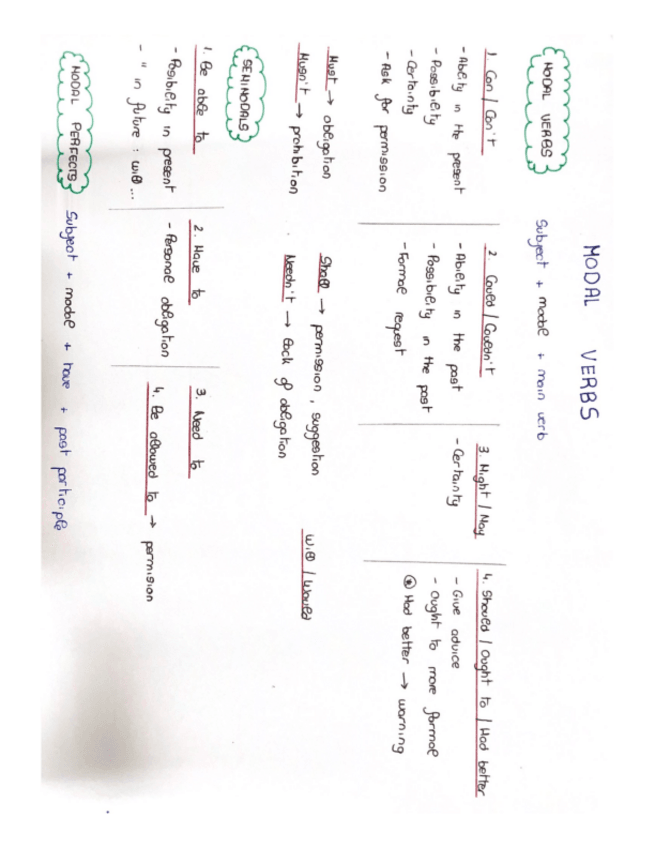 MODAL VERBS
MODAL VERBS
Subject + modal + main verb
1. Can / Can't
- Ability in the present
- Possibility
- Certainty
- Ask for permission
2. Could / Couldn't
- Ability in the past
- Possibility in the past
- Formal request
3. Might / May
- Certainty
4. Should / Ought to / Had better
- Give advice
- Ought to more formal
* Had better → warning
Must → obligation
Musn't → prohibition
Shall → permission, suggestion
Needn't → lack of obligation
Will / Would
SEMIMODALS
1. Be able to
- Possibility in present
- " in future: will...
2. Have to
- Personal obligation
3. Need to
4. Be allowed to → permision
MODAL PERFECTS
Subject + modal + have + past participle